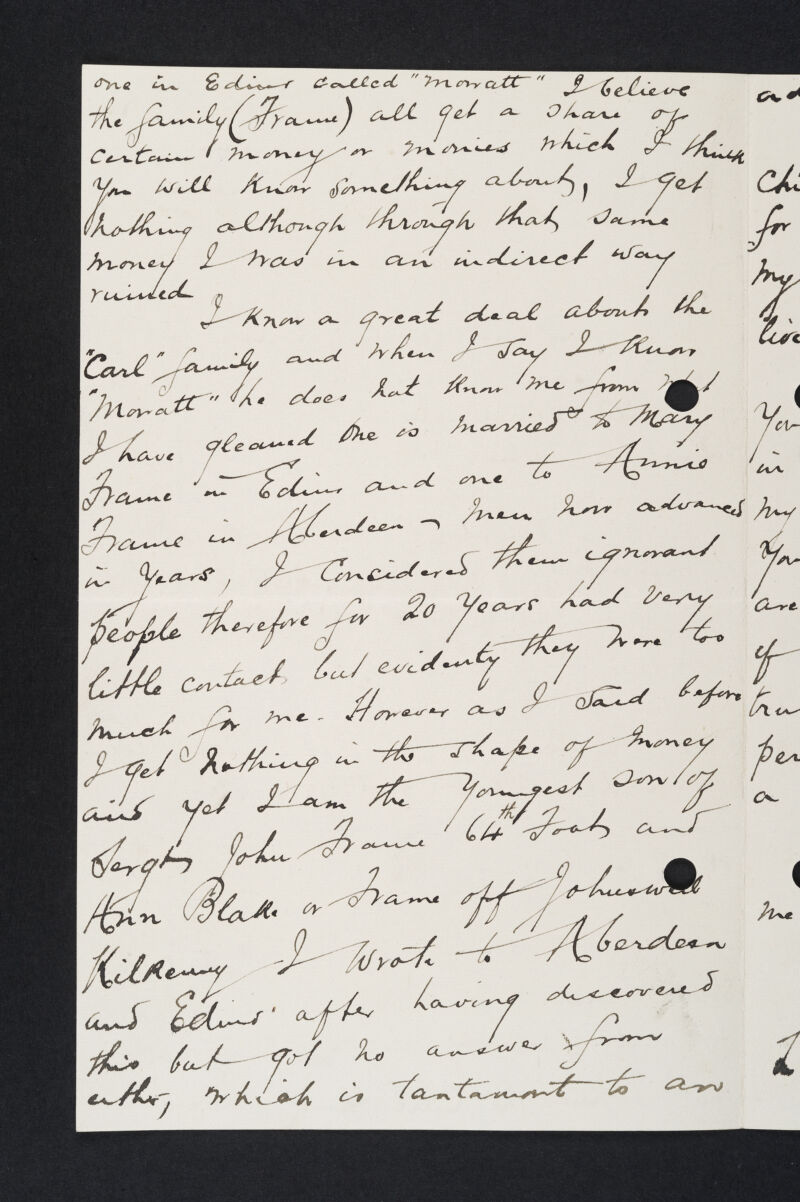 one in Edinr called "Mowatt" I believe
the family (Frame) all get a share of
certain money or monies which I think
you will know something about, I get
nothing although through that same
money I was in an indirect way
ruined
I know a great deal about the
"Carl" family and when I say I know
"Mowatt" he does not know me from
I have gleaned One is married to Mary
Frame in Edinr and one to Annie
Frame in Aberdeen - men now advanced
in years, I considered them ignorant
people therefore for 20 years had very
little contact but evidenty they were too
much for me. However as I said before
I get nothing in the shape of money
and yet I am the youngest son of
Sergt John Frame 64th Foot and
Ann Blake or Frame off Johnswell
Kilkenny I wrote to Aberdeen
and Edinr after having discovered
this but got no answer from
either, which is tantamont to an
chi
for
my
You
in
my
You
are
if
tru
per
a
me